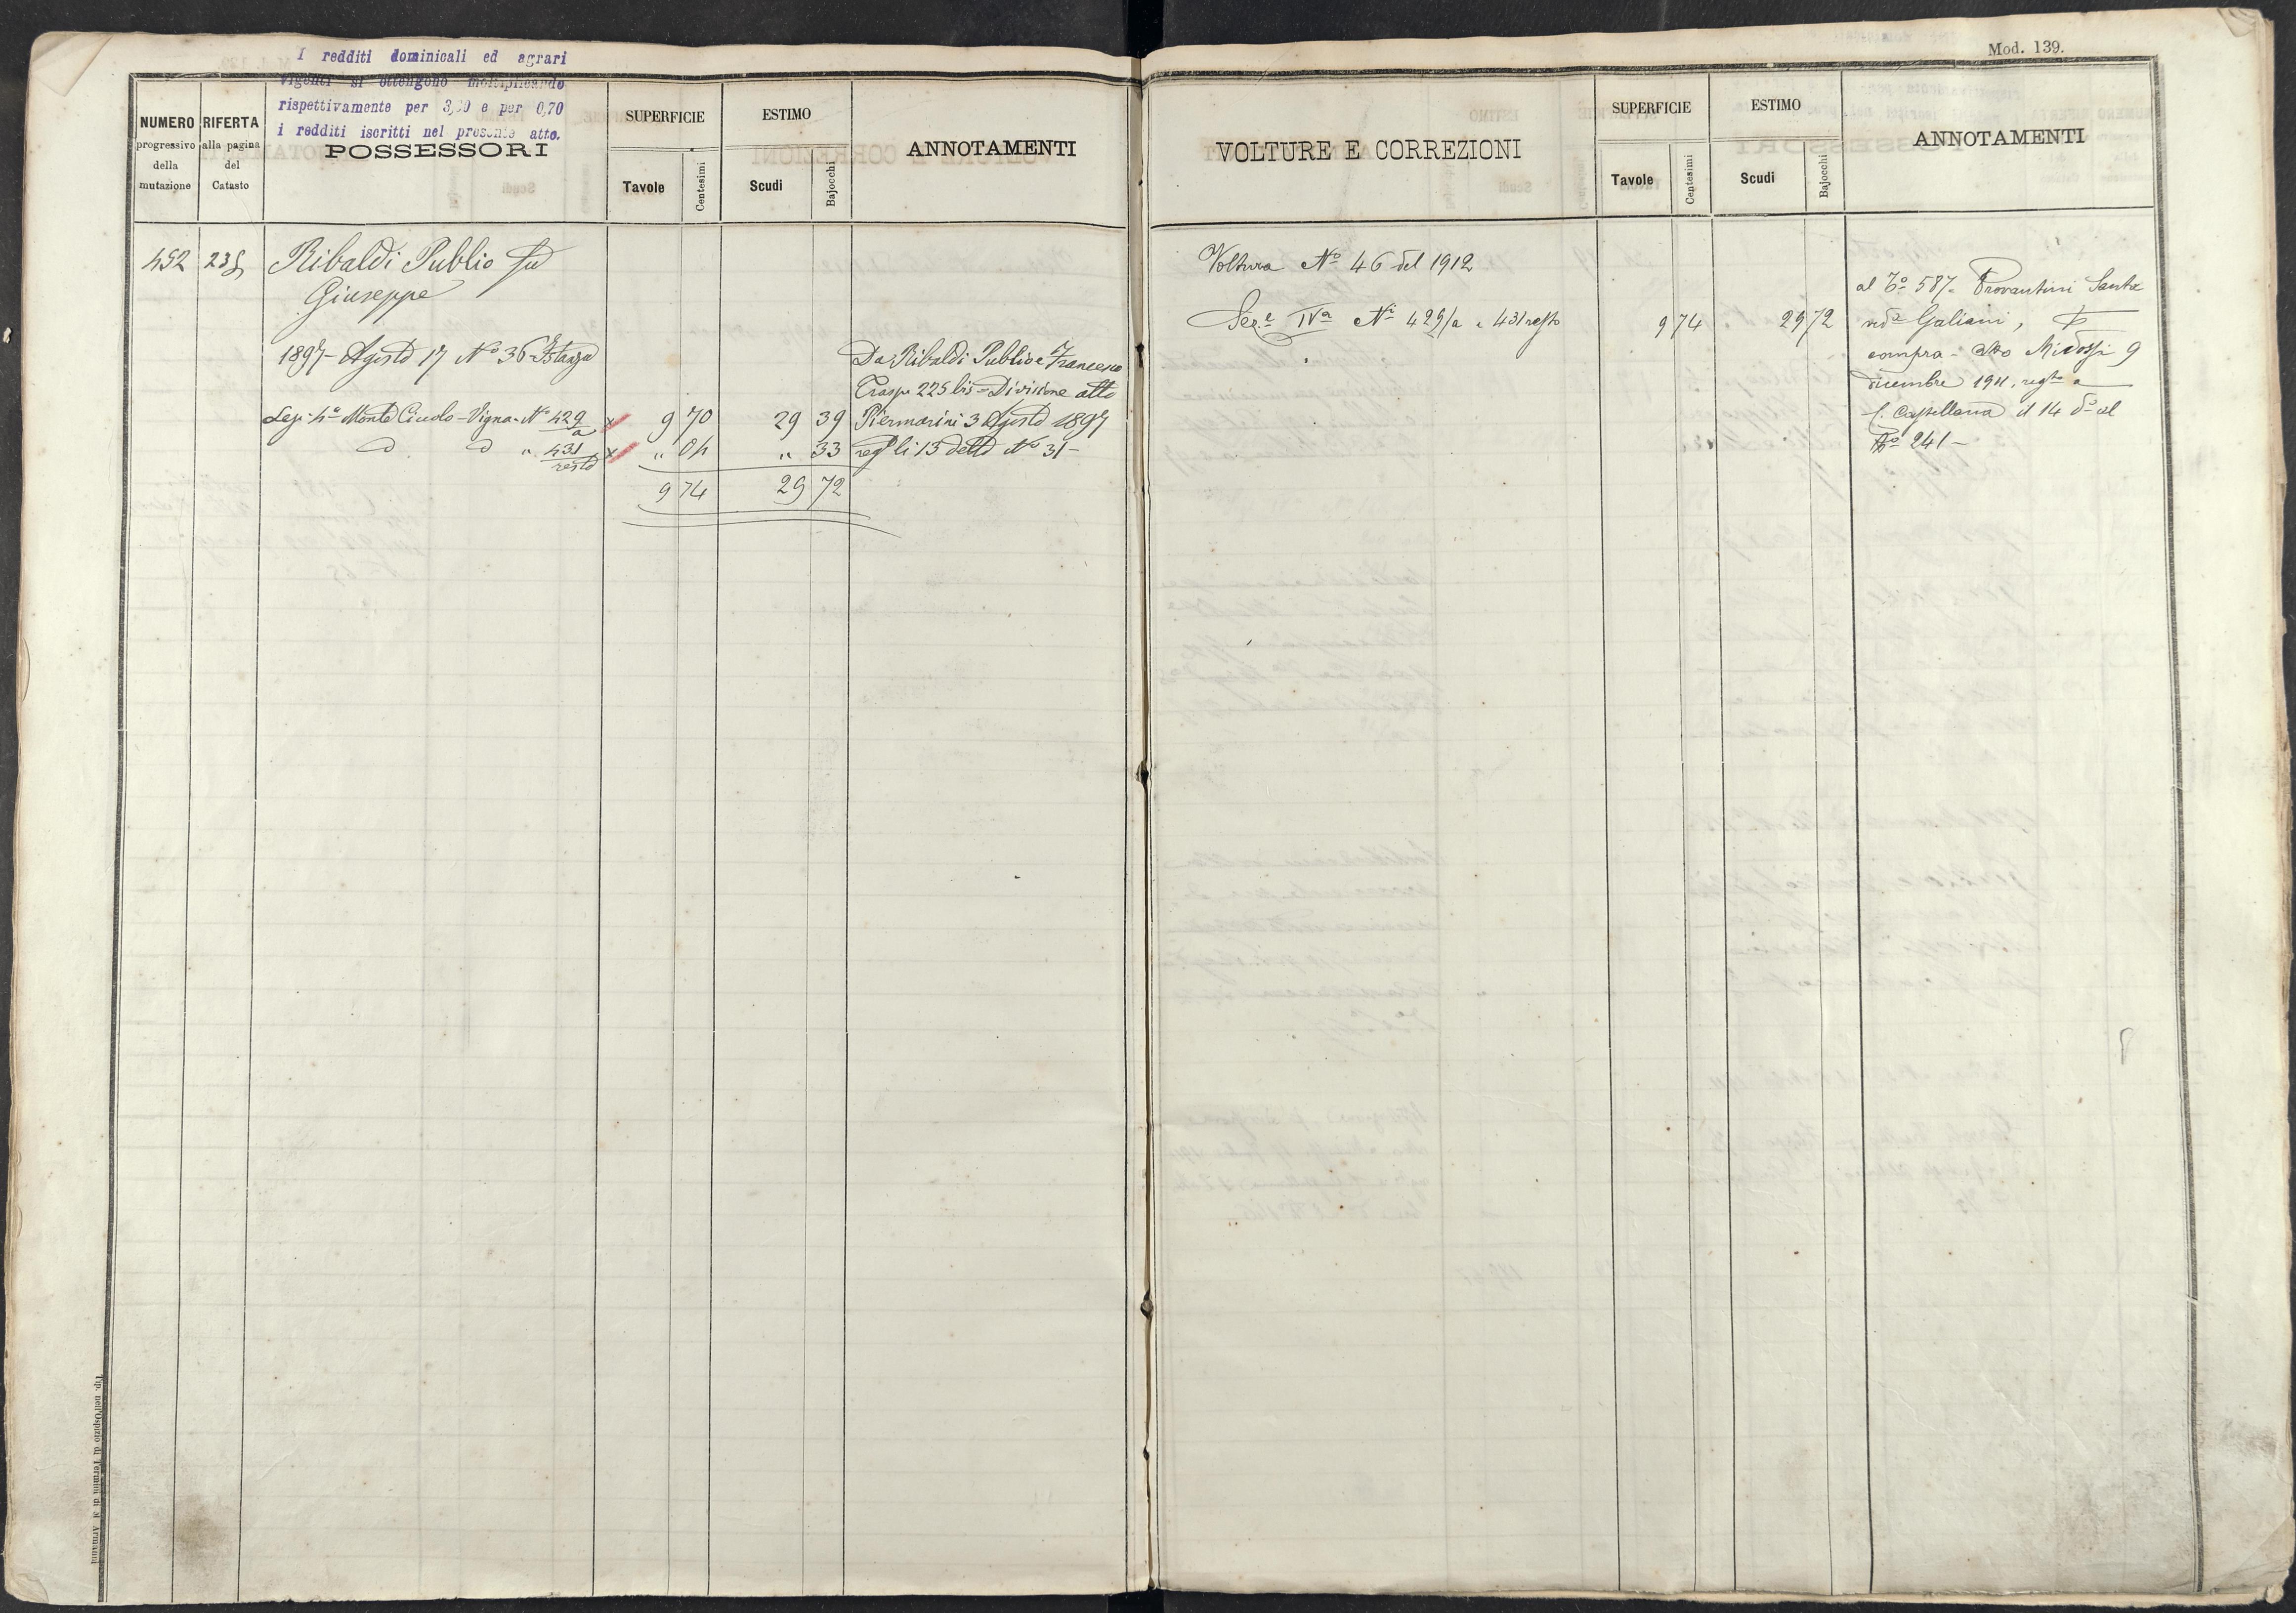 I redditi dominicali ed agrari
vigenti si ottengono moltiplicando
rispettivamente per 3,50 e per 0,70
i redditi iscritti nel presente atto.
NUMERO
progressivo
della
mutazione
RIFERTA
alla pagina
del
Catasto
POSSESSORI
SUPERFICIE
Tavole
Centesimi
ESTIMO
Scudi
Bajocchi
ANNOTAMENTI
452
Ribaldi Publio fu
Giuseppe
1897 - Agosto 17 Nº 36 Istanza
Da Ribaldi Publio e Francesco
Traspº 225 bis = Divisione atto
Sezº 4ª Monte Ciculo - Vigna - Nº 429/a x 9 70 29 39 Piermarini 3 Agosto 1897
d d " 431/resto x " 04 " 33 regº li 13 detto Nº 31 -
9 74 29 72
Tip. nell'Ospizio di Termini di N. Armanni
Mod. 139.
VOLTURE E CORREZIONI
SUPERFICIE
Tavole
Centesimi
ESTIMO
Scudi
Bajocchi
ANNOTAMENTI
Voltura Nº 46 del 1912
Sez.e IVa Ni 429/a e 431 resto 9 74 29 72
al Tº 587 - Provantini Santa
vedª Galiani, p
compra - atto Midossi 9
dicembre 1911, regto a
C. Castellana il 14 dº al
Nº 241 -